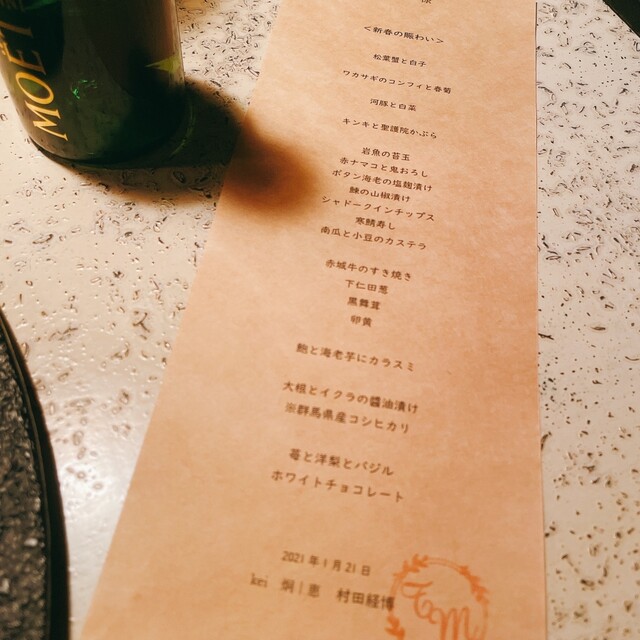 MOËT
様
<新春の賑わい>
松葉蟹と白子
ワカサギのコンフィと春菊
河豚と白菜
キンキと聖護院かぶら
岩魚の苔玉
赤ナマコと鬼おろし
ボタン海老の塩麹漬け
鰊の山椒漬け
シャドークインチップス
寒鯖寿し
南瓜と小豆のカステラ
赤城牛のすき焼き
下仁田葱
黒舞茸
卵黄
鮑と海老芋にカラスミ
大根とイクラの醤油漬け
※群馬県産コシヒカリ
苺と洋梨とバジル
ホワイトチョコレート
2021年1月21日
kei 炯|恵 村田経博